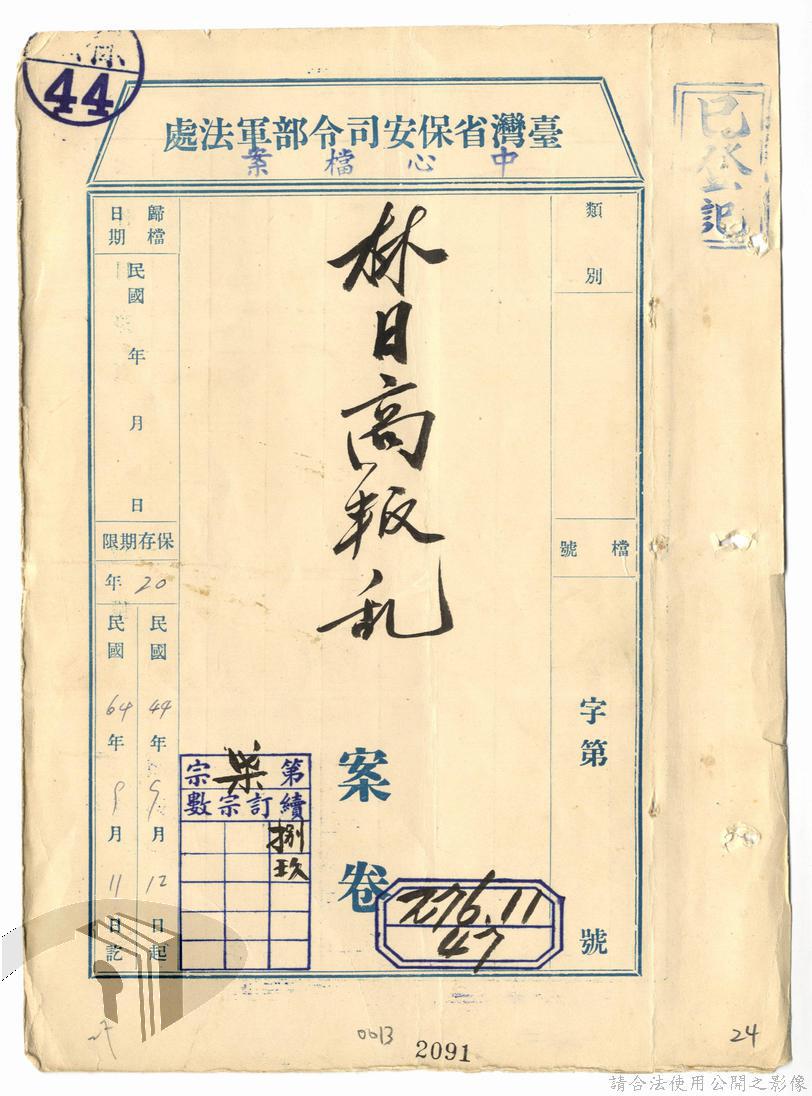 44
臺灣省保安司令部軍法處
中心檔案
已登記
類別
檔號
字第
號
林日高叛乱
案卷
歸檔日期
民國
年
月
日
保存期限
20年
民國44年9月12日起
民國64年9月11日訖
第柒宗
續訂宗數
捌
玖
276.11
47
0013
2091
24
請合法使用公開之影像